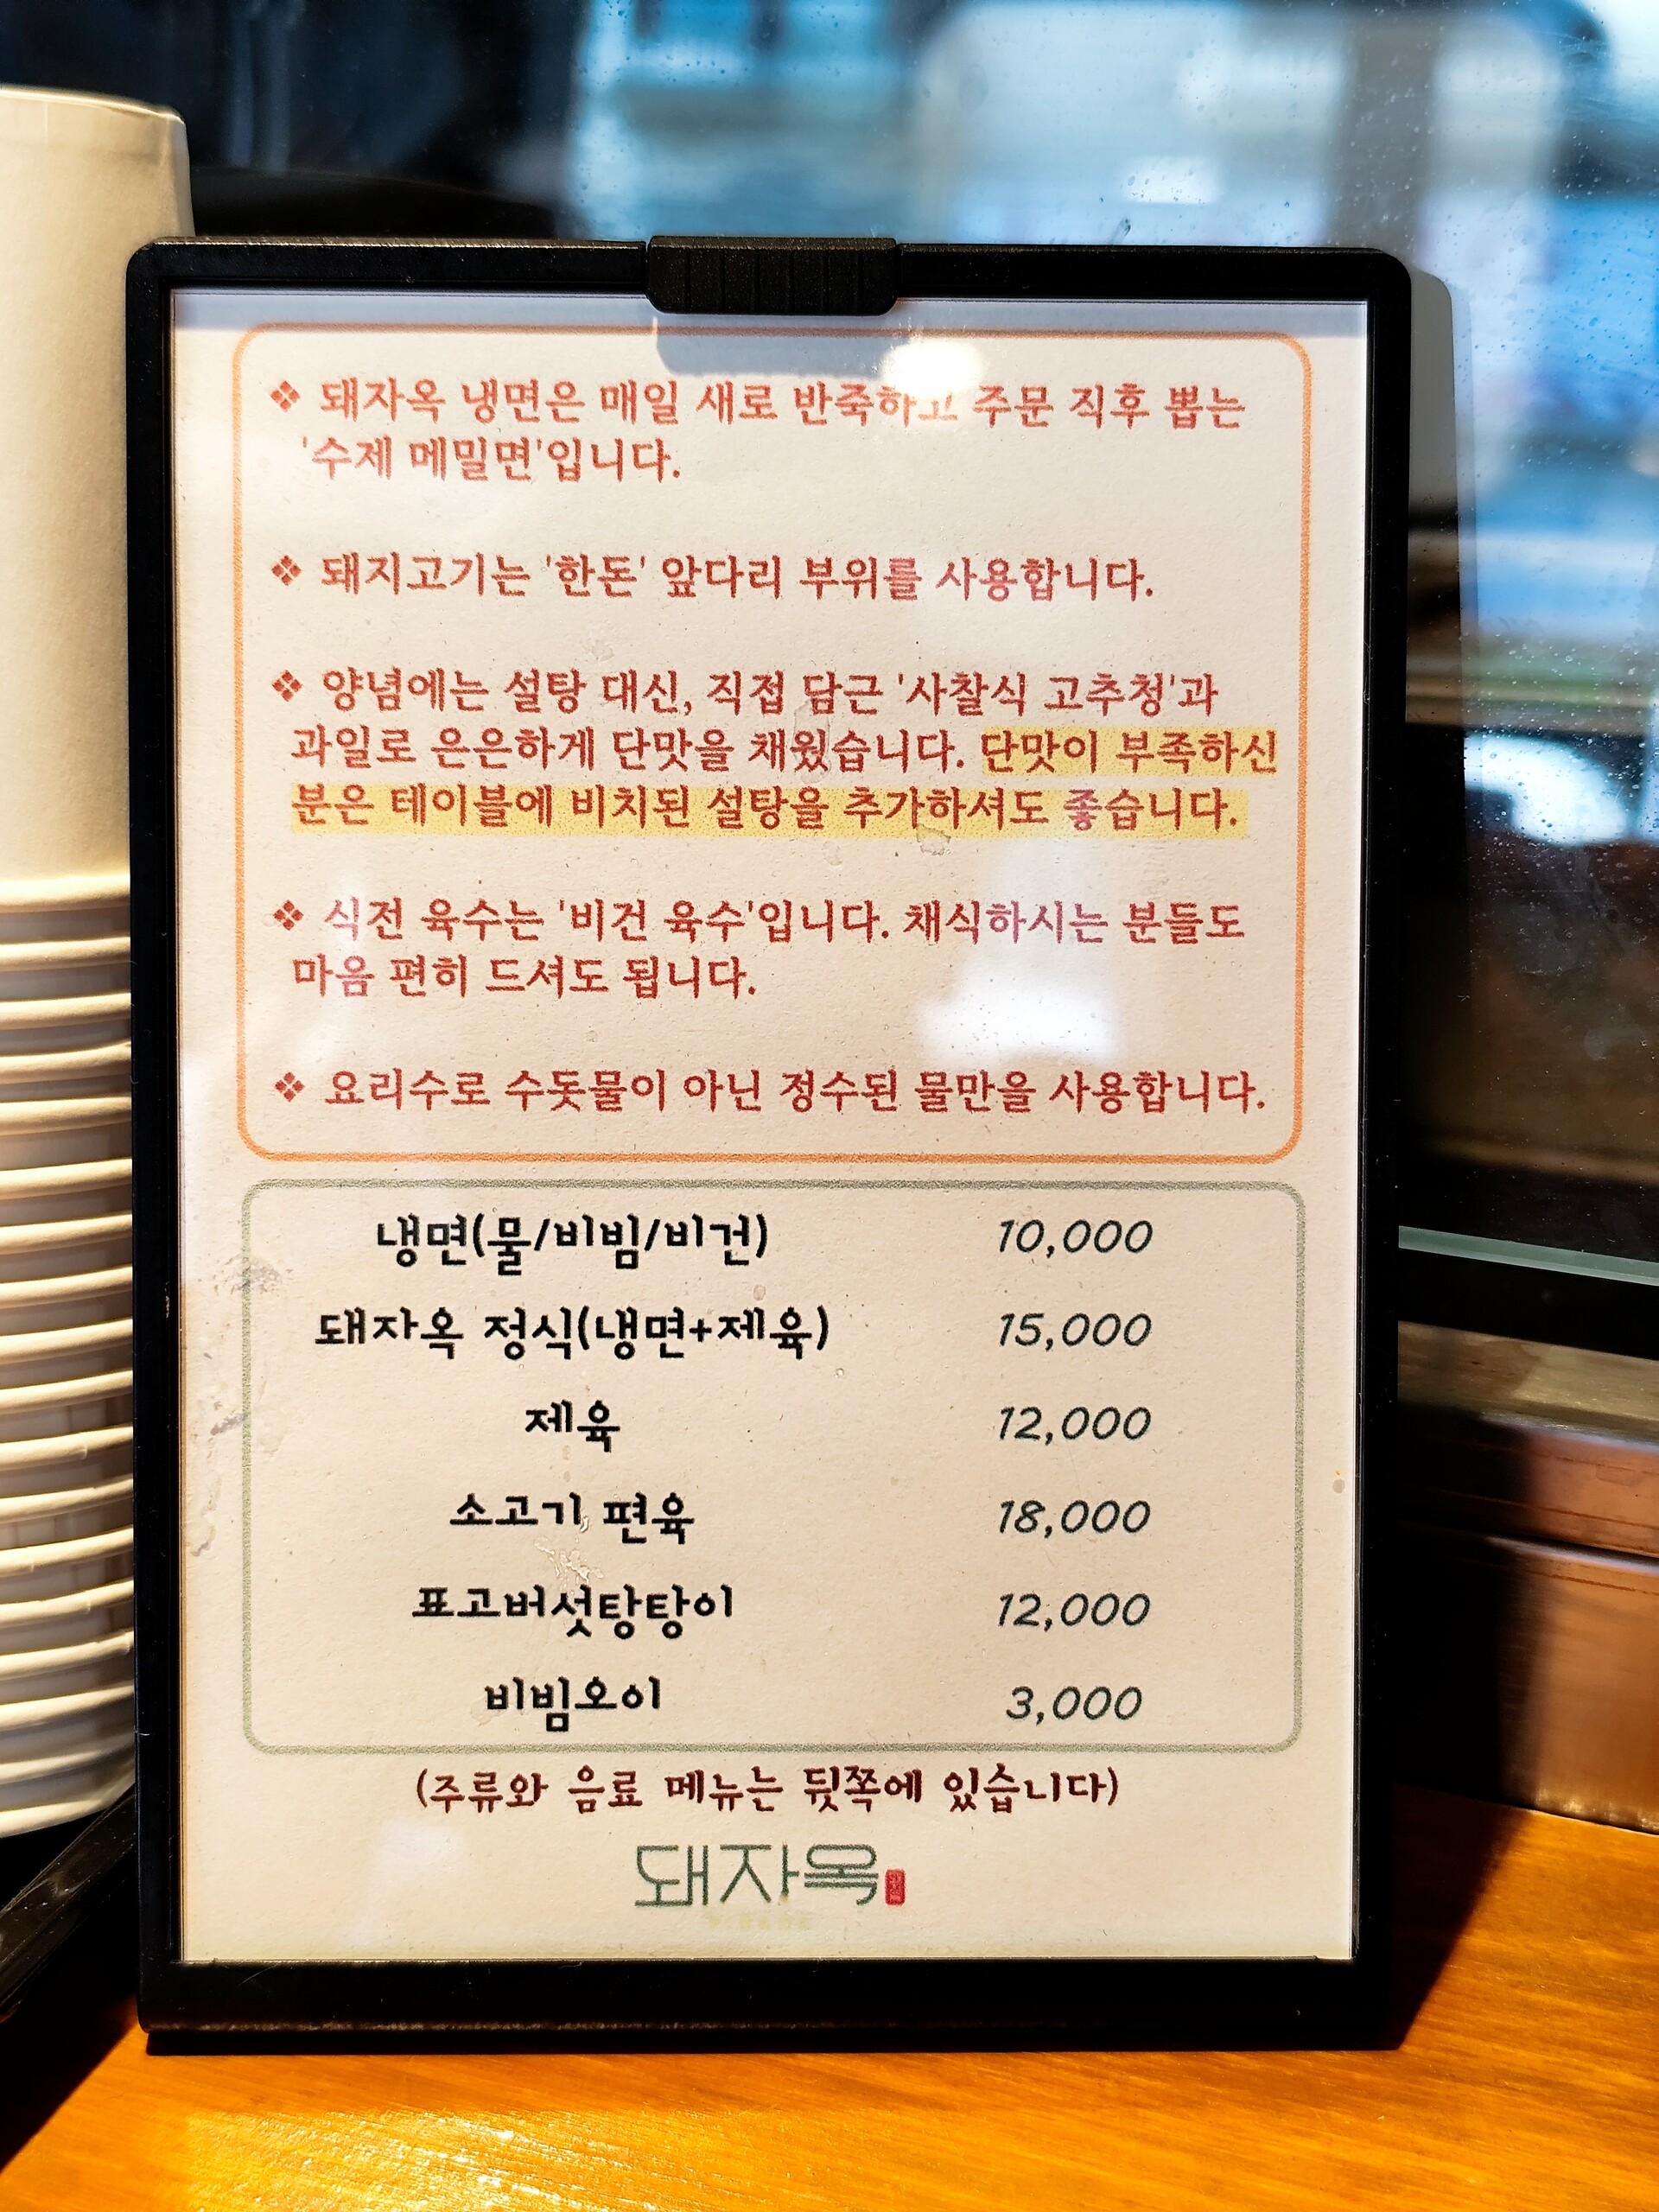 ❖ 돼자옥 냉면은 매일 새로 반죽하고 주문 직후 뽑는
'수제 메밀면'입니다.
❖ 돼지고기는 '한돈' 앞다리 부위를 사용합니다.
❖ 양념에는 설탕 대신, 직접 담근 '사찰식 고추청'과
과일로 은은하게 단맛을 채웠습니다. 단맛이 부족하신
분은 테이블에 비치된 설탕을 추가하셔도 좋습니다.
❖ 식전 육수는 '비건 육수'입니다. 채식하시는 분들도
마음 편히 드셔도 됩니다.
❖ 요리수로 수돗물이 아닌 정수된 물만을 사용합니다.
냉면(물/비빔/비건) 10,000
돼자옥 정식(냉면+제육) 15,000
제육 12,000
소고기 편육 18,000
표고버섯탕탕이 12,000
비빔오이 3,000
(주류와 음료 메뉴는 뒷쪽에 있습니다)
돼자옥